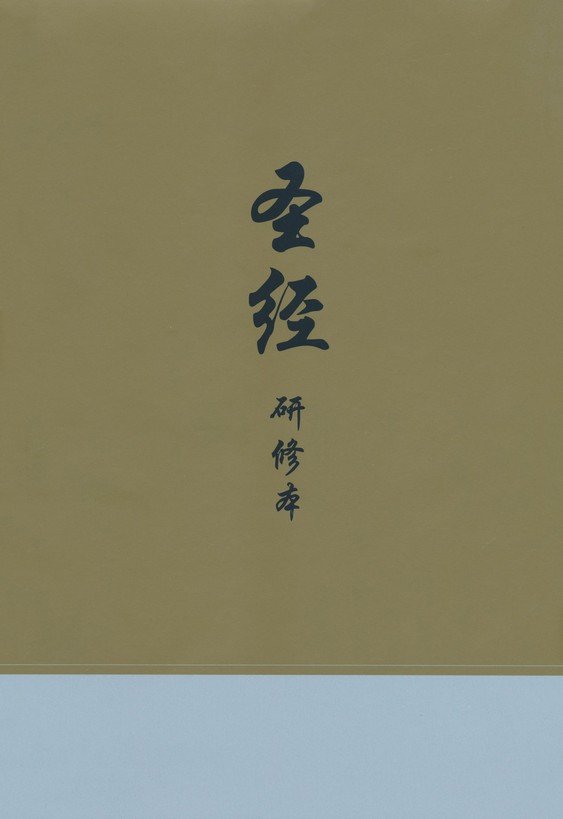 圣经
研修本